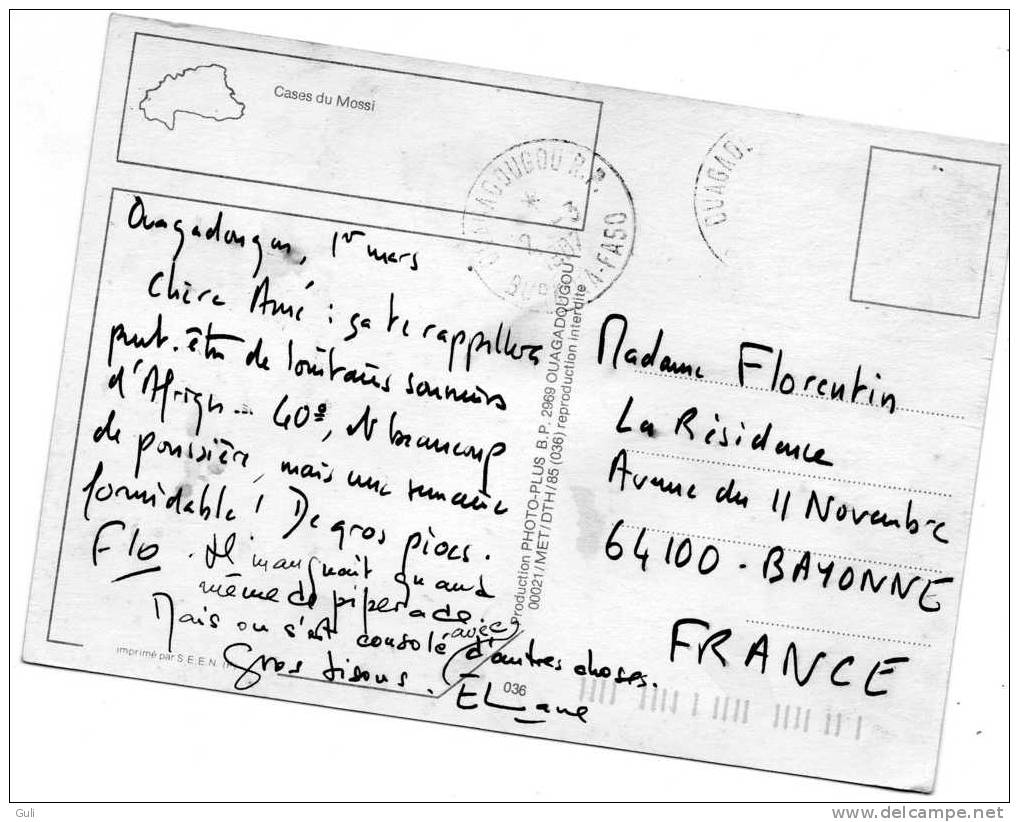 Cases du Mossi
OUAGADOUGOU R.P.
BURKINA-FASO
OUAGAD.
Ouagadougou, 1er mars
Chère Amé : ça te rappellera
peut-être de lointains souvenirs
d'Afrique... 40º, et beaucoup
de poussière, mais une semaine
formidable ! De gros
Flo. Il manquait quand
même de piperade.
Mais on s'est consolé avec
d'autres choses.
Gros bisous.
Madame Florentin
La Résidence
Avenue du 11 Novembre
64100 - BAYONNE
FRANCE
Production PHOTO-PLUS B.P. 2969 OUAGADOUGOU
00021/MET/DTH/85 (036) reproduction interdite
imprimé par S.E.E.N.
036
Guli
www.delcampe.net